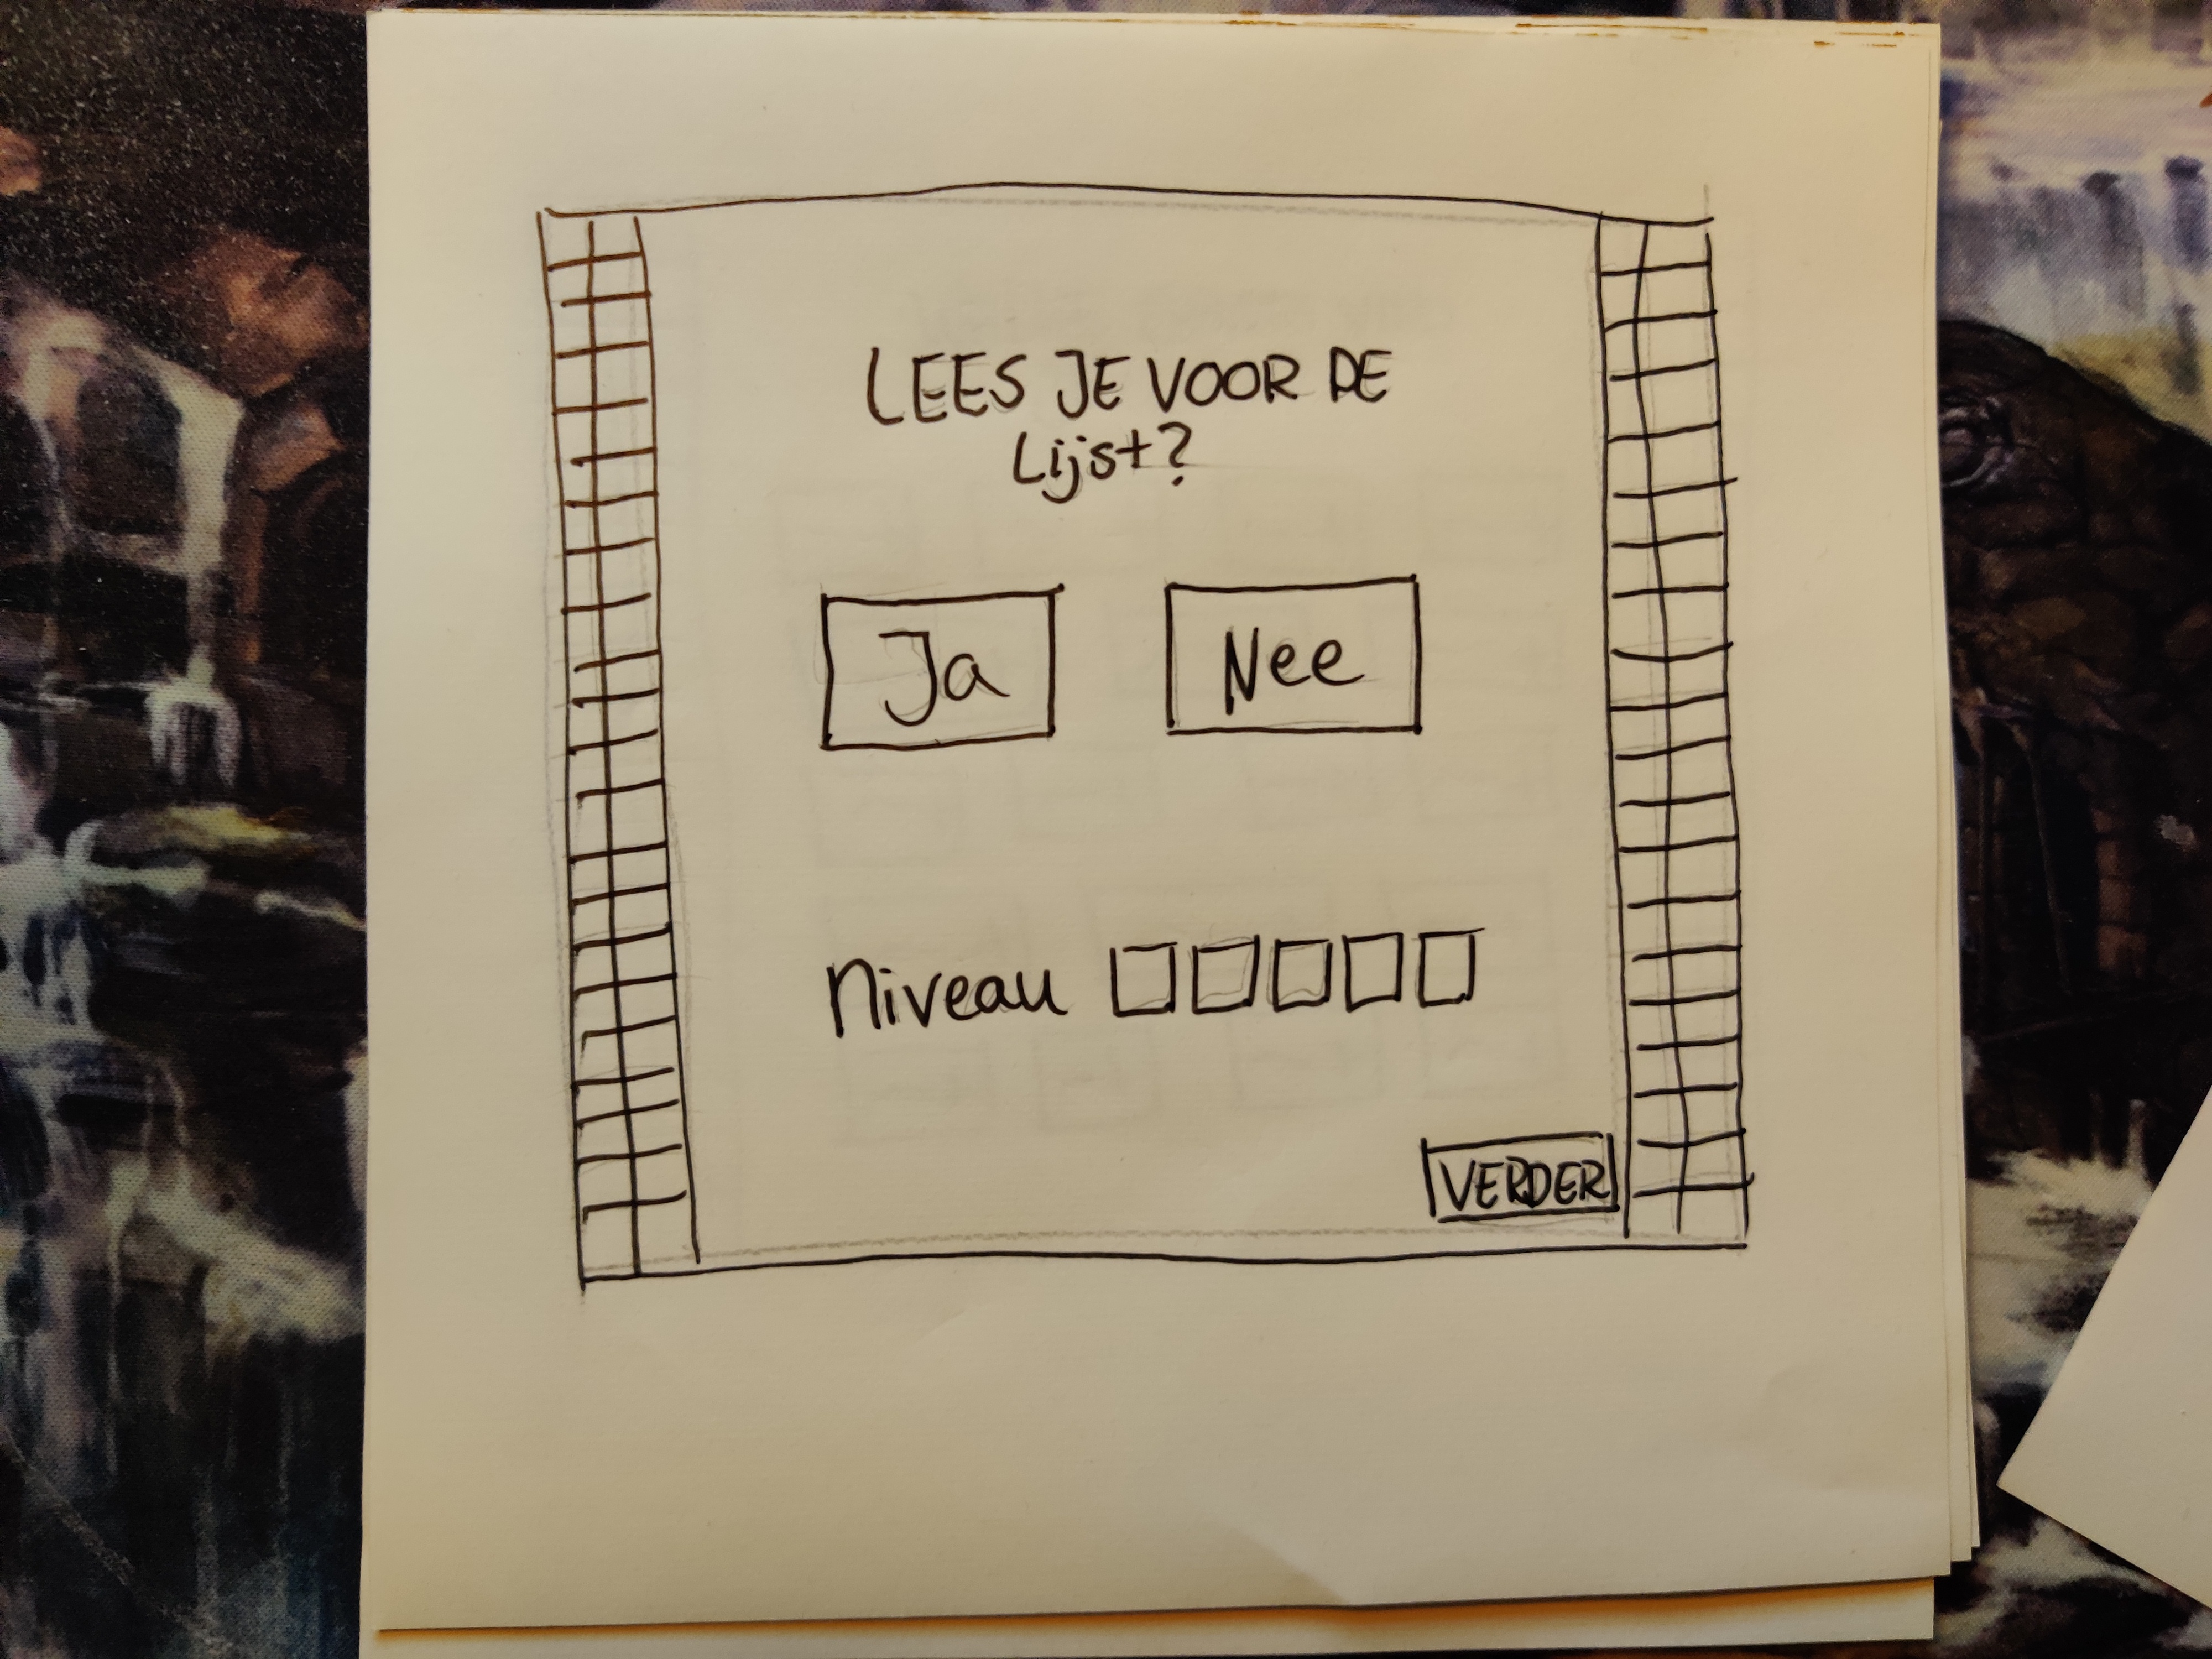 LEES JE VOOR DE
Lijst?
Ja
Nee
Niveau
VERDER